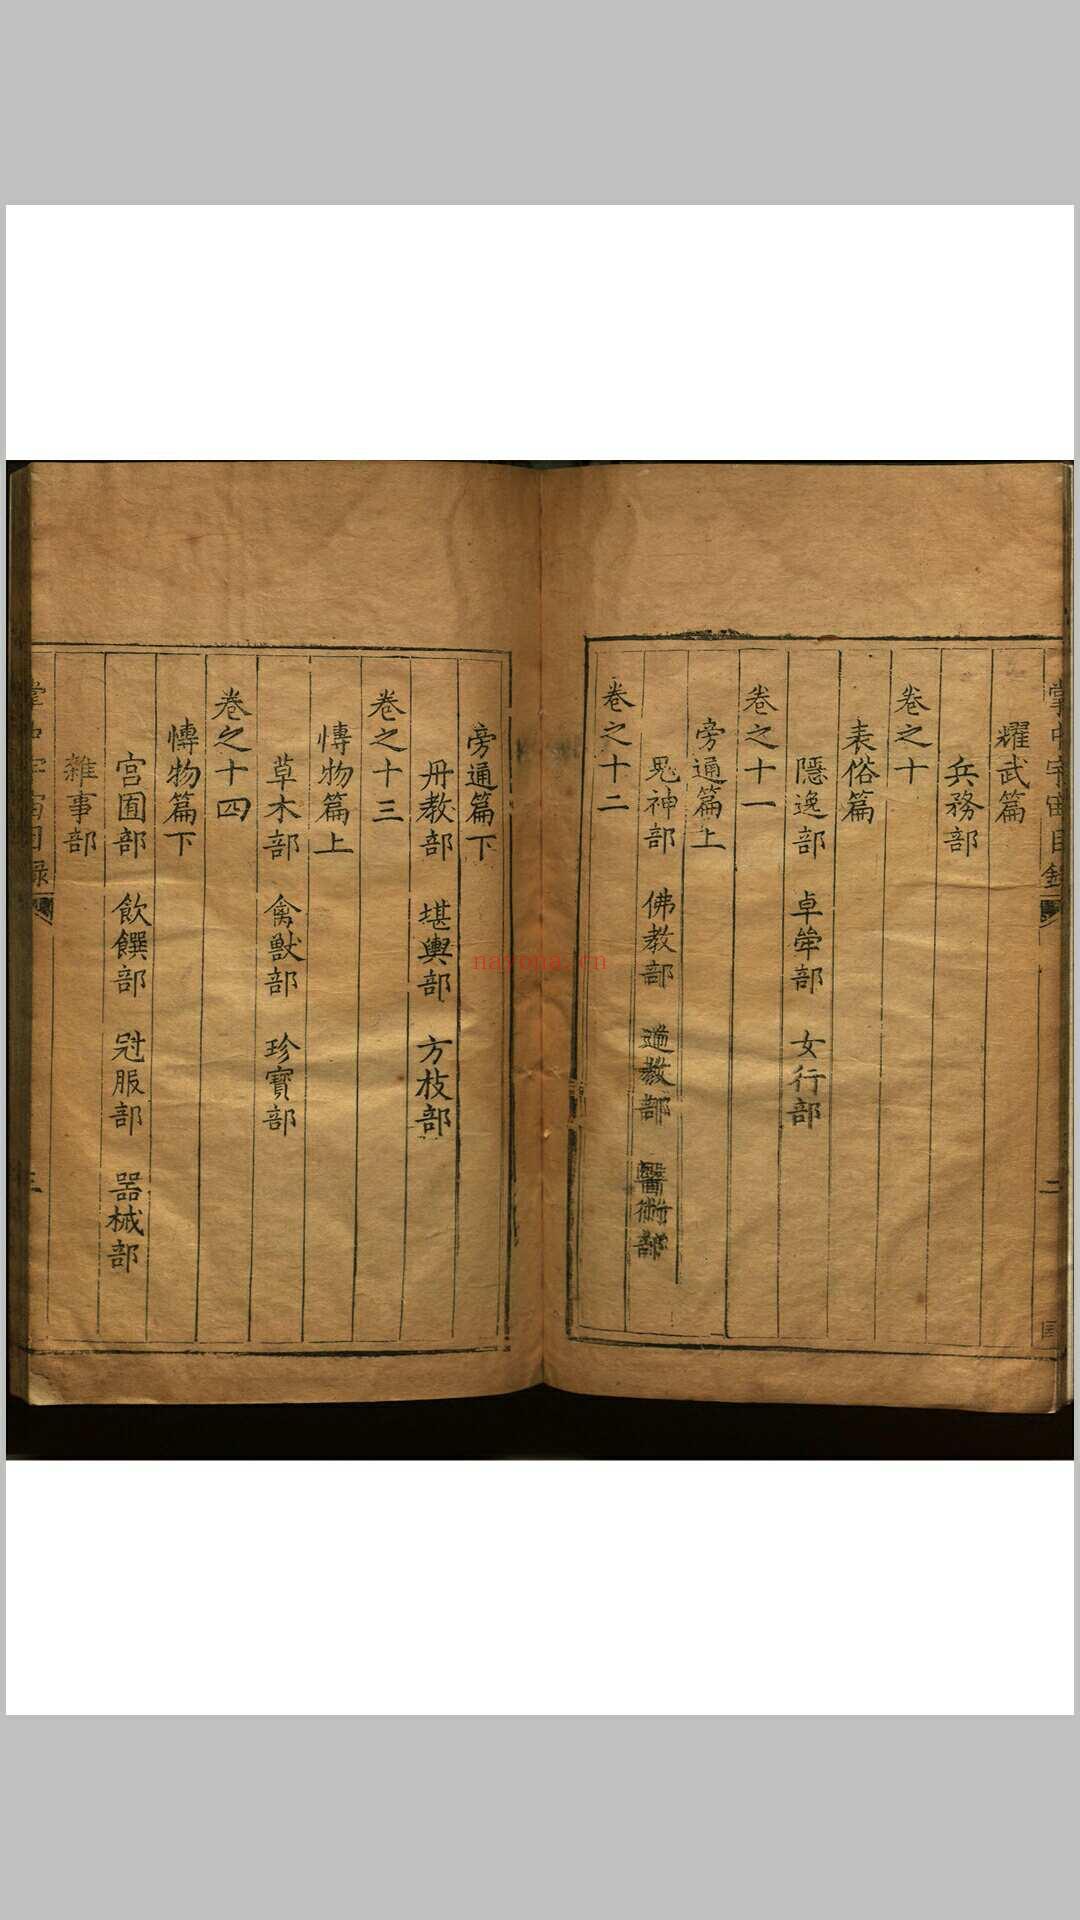 掌中宇宙目錄
二
耀武篇
兵務部
卷之十
表俗篇
隱逸部 卓犖部 女行部
卷之十一
旁通篇上
鬼神部 佛教部 道教部 醫術部
卷之十二
旁通篇下
丹教部 堪輿部 方技部
卷之十三
博物篇上
草木部 禽獸部 珍寶部
卷之十四
博物篇下
宮囿部 飲饌部 冠服部 器械部
雜事部
掌中宇宙目錄
三
nayona.cn